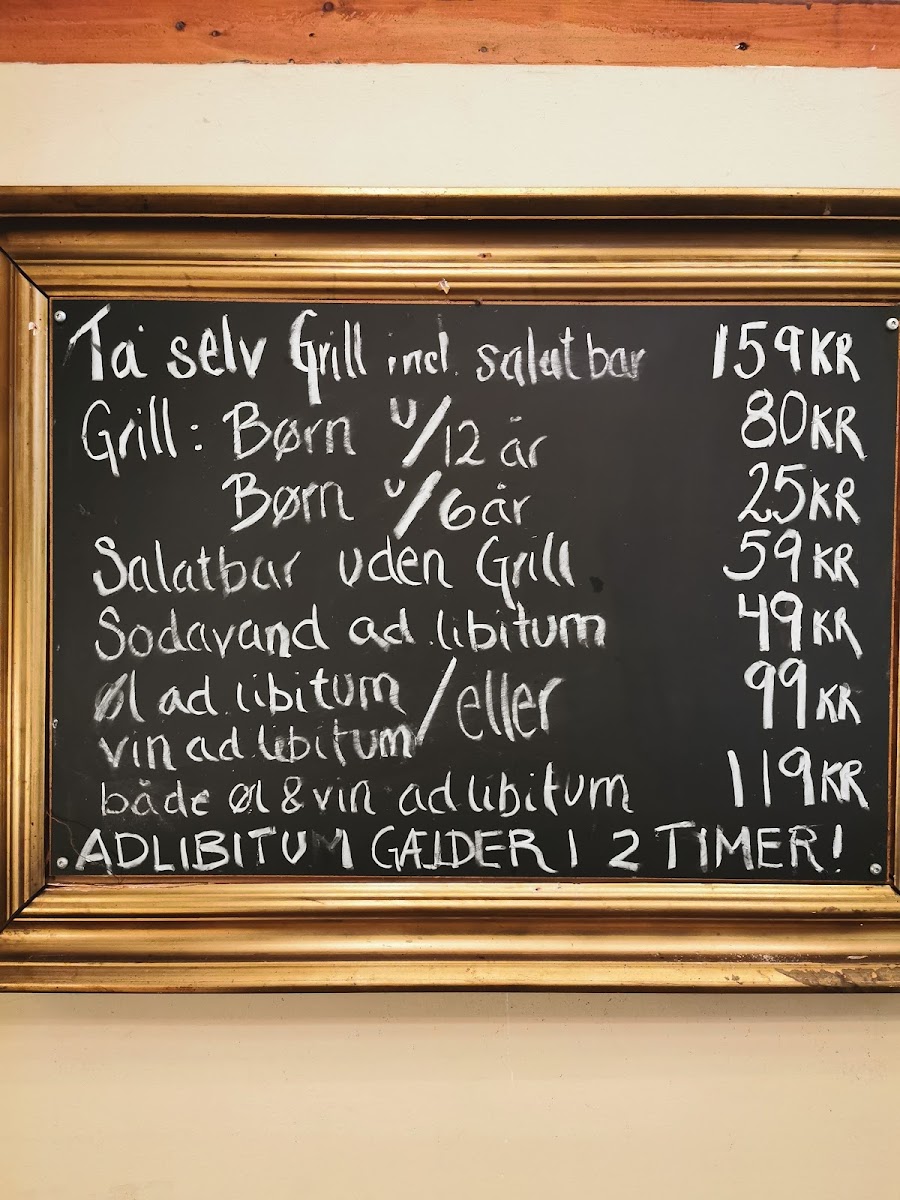 Ta' selv Grill incl. salatbar 159KR
Grill: Børn u/12 år 80KR
Børn u/6 år 25KR
Salatbar uden Grill 59KR
Sodavand ad.libitum 49KR
Øl ad.libitum/eller 99KR
vin ad.libitum
både øl & vin adlibitum 119KR
ADLIBITUM GÆLDER I 2 TIMER!